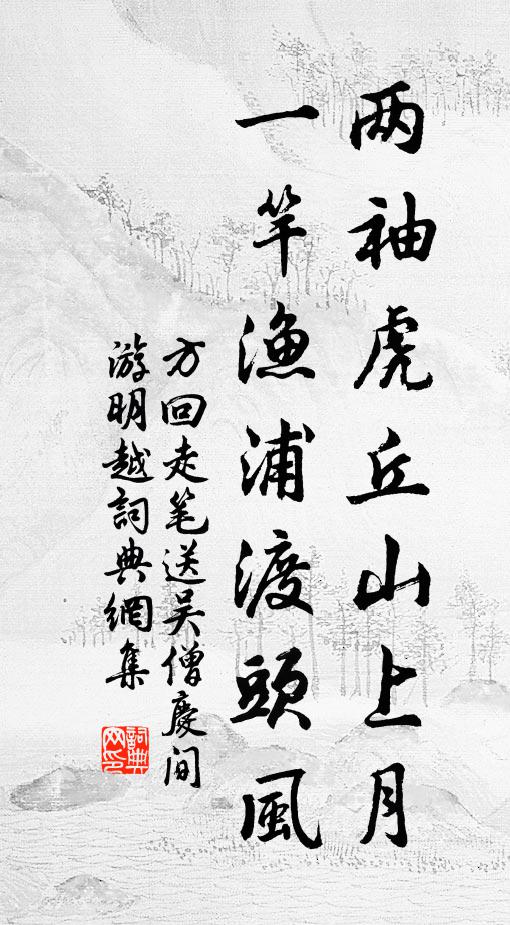 两袖虎丘山上月
一竿渔浦渡頭風
方回走笔送吴僧慶间
游明越詞典網集
詞典网印